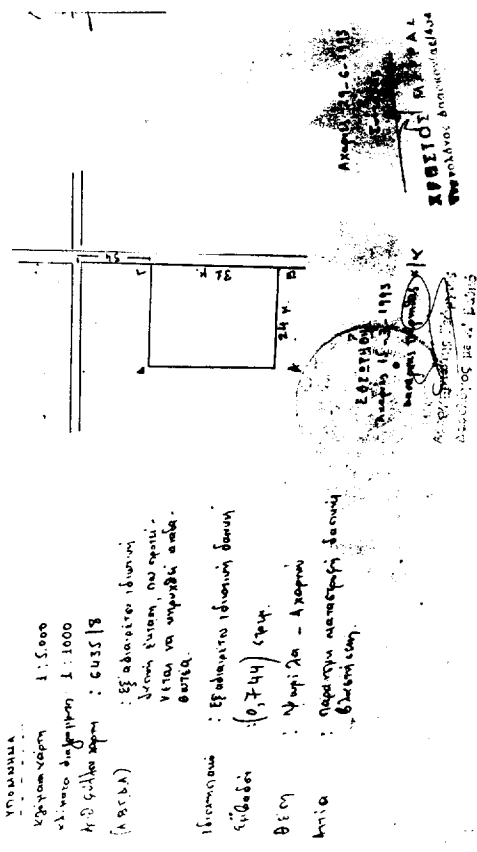 ΥΠΟΜΝΗΜΑ
Κλίμακα χάρτη 1:5.000
κλίμακα διαγράμματος 1:1000
Αρ. Φύλλου χάρτη : 6435/8
(ΑΒΓΔΑ) : Εξ αδιαιρέτου ιδιωτική
δασική έκταση, που προτεί-
νεται να κηρυχθεί αναδα-
σωτέα.
Ιδιοκτησιακό : Εξ αδιαιρέτου ιδιωτική δασική
Εμβαδόν : (0,744) στρεμ.
Θέση : Ψωρίλα - Αχαρνών
Αιτία : παράνομη καταστροφή δασικής
βλάστησης.
54
Δ
Γ
31 μ
24 μ
Α
Β
ΕΘΕΩΡΗΘΗ
Αχαρνές 1993
Ο
Αχαρνές 29-6-1993
ΧΡΗΣΤΟΣ